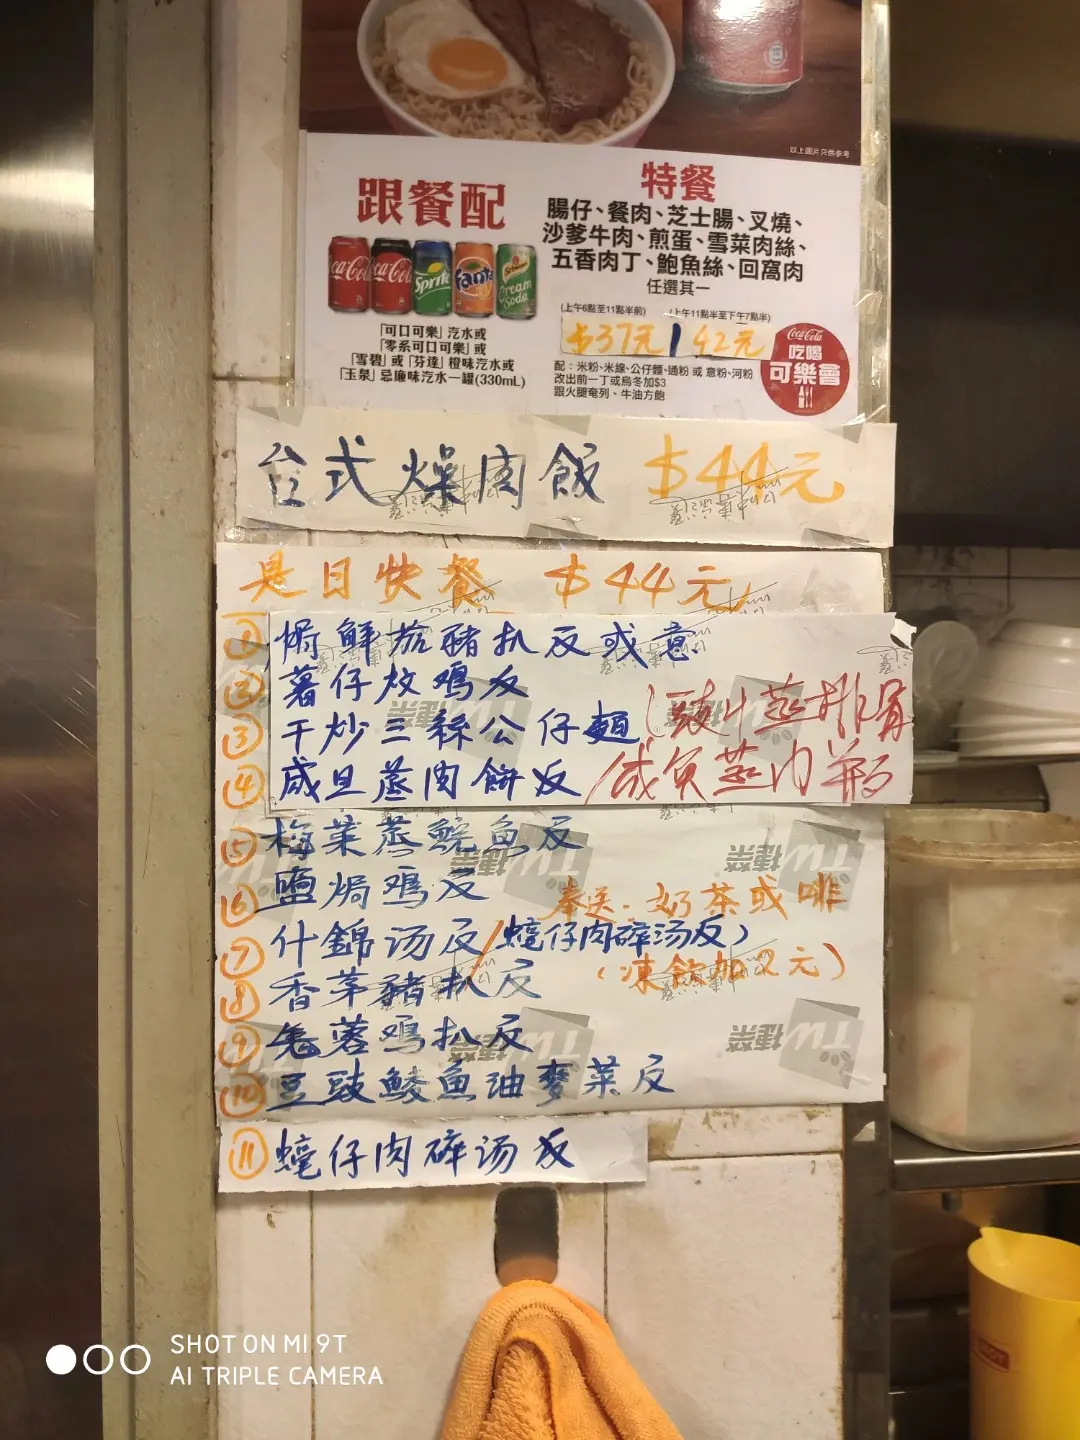 以上圖片只供參考
跟餐配
Coca-Cola
Coca-Cola
Sprite
Fanta
Schweppes
Cream Soda
「可口可樂」汽水或
「零系可口可樂」或
「雪碧」或「芬達」橙味汽水或
「玉泉」忌廉味汽水一罐(330mL)
特餐
腸仔、餐肉、芝士腸、叉燒、
沙爹牛肉、煎蛋、雪菜肉絲、
五香肉丁、鮑魚絲、回窩肉
任選其一
(上午6點至11點半前) (上午11點半至下午7點半)
$37元 | 42元
配：米粉、米線、公仔麵、通粉 或 意粉、河粉
改出前一丁或烏冬加$3
跟火腿奄列、牛油方飽
Coca-Cola
吃喝
可樂會
台式燥肉飯 $44元
是日快餐 $44元
① 焗鮮茄豬扒反或意
② 薯仔炆鸡反
③ 干炒三絲公仔麵 (豉汁蒸排骨
④ 咸旦蒸肉餅反/咸魚蒸肉餅
⑤ 梅菜蒸鯇魚反
⑥ 鹽焗鸡反
奉送：奶茶或啡
⑦ 什錦汤反/蠔仔肉碎汤反)
(凍飲加2元)
⑧ 香茅豬扒反
⑨ 蓉鸡扒反
⑩ 豆豉鯪魚油麥菜反
⑪ 蠔仔肉碎汤反
TW捷榮
TW捷榮
TW捷榮
TW捷榮
SHOT ON MI 9T
AI TRIPLE CAMERA